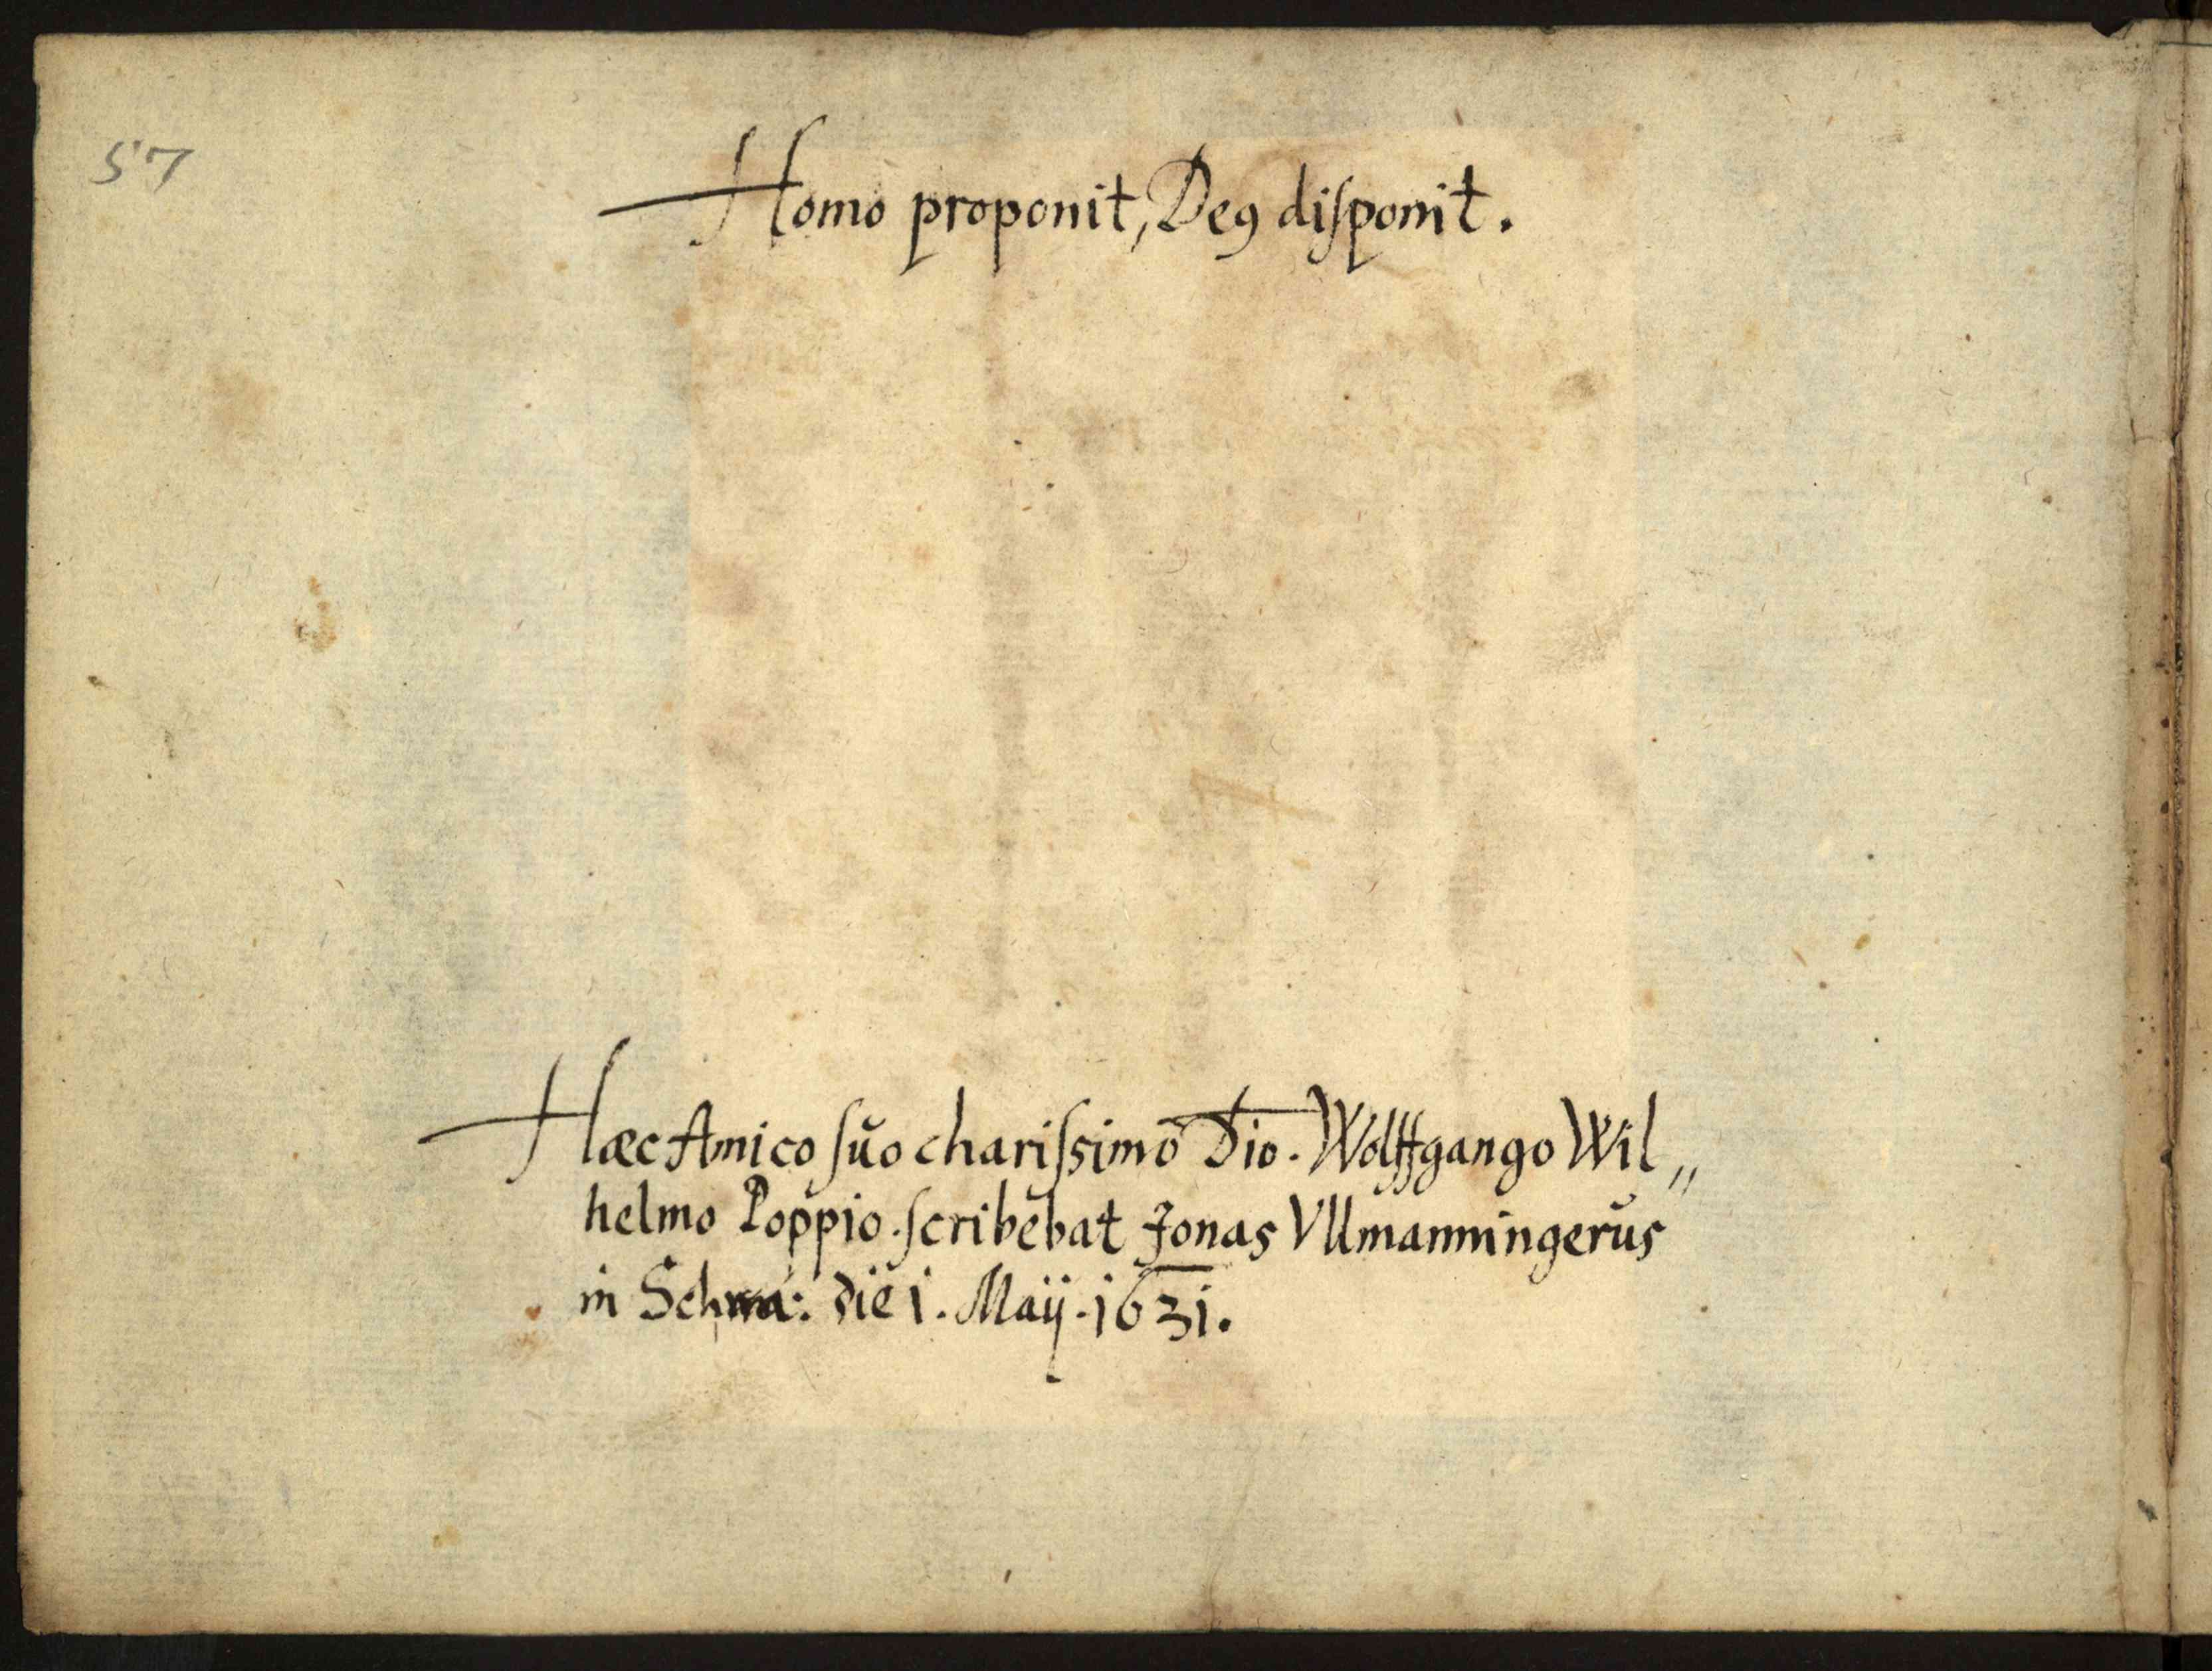 57
Homo proponit, Deꝰ diſponit.
Hæc Amico ſŭo chariſsimo Dn̄o. Wolffgango Wil„
helmo Poppio. ſcribebat Jonas Vllmanningerŭs
in Schwa: die 1. Maij. 1631.